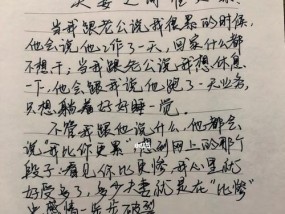 当我跟老公说我很累的时候,
他会说他工作了一天,回家什么都
不想干;当我跟老公说我想休息
一下,他会跟我说他跑了一天业务,
只想躺着好好睡一觉。
不管我跟他说什么,他都会
说"我比你更累"想到网上的那个
段子:看见你比我更惨,我心里就
好受多了,多少夫妻就是在"比惨"